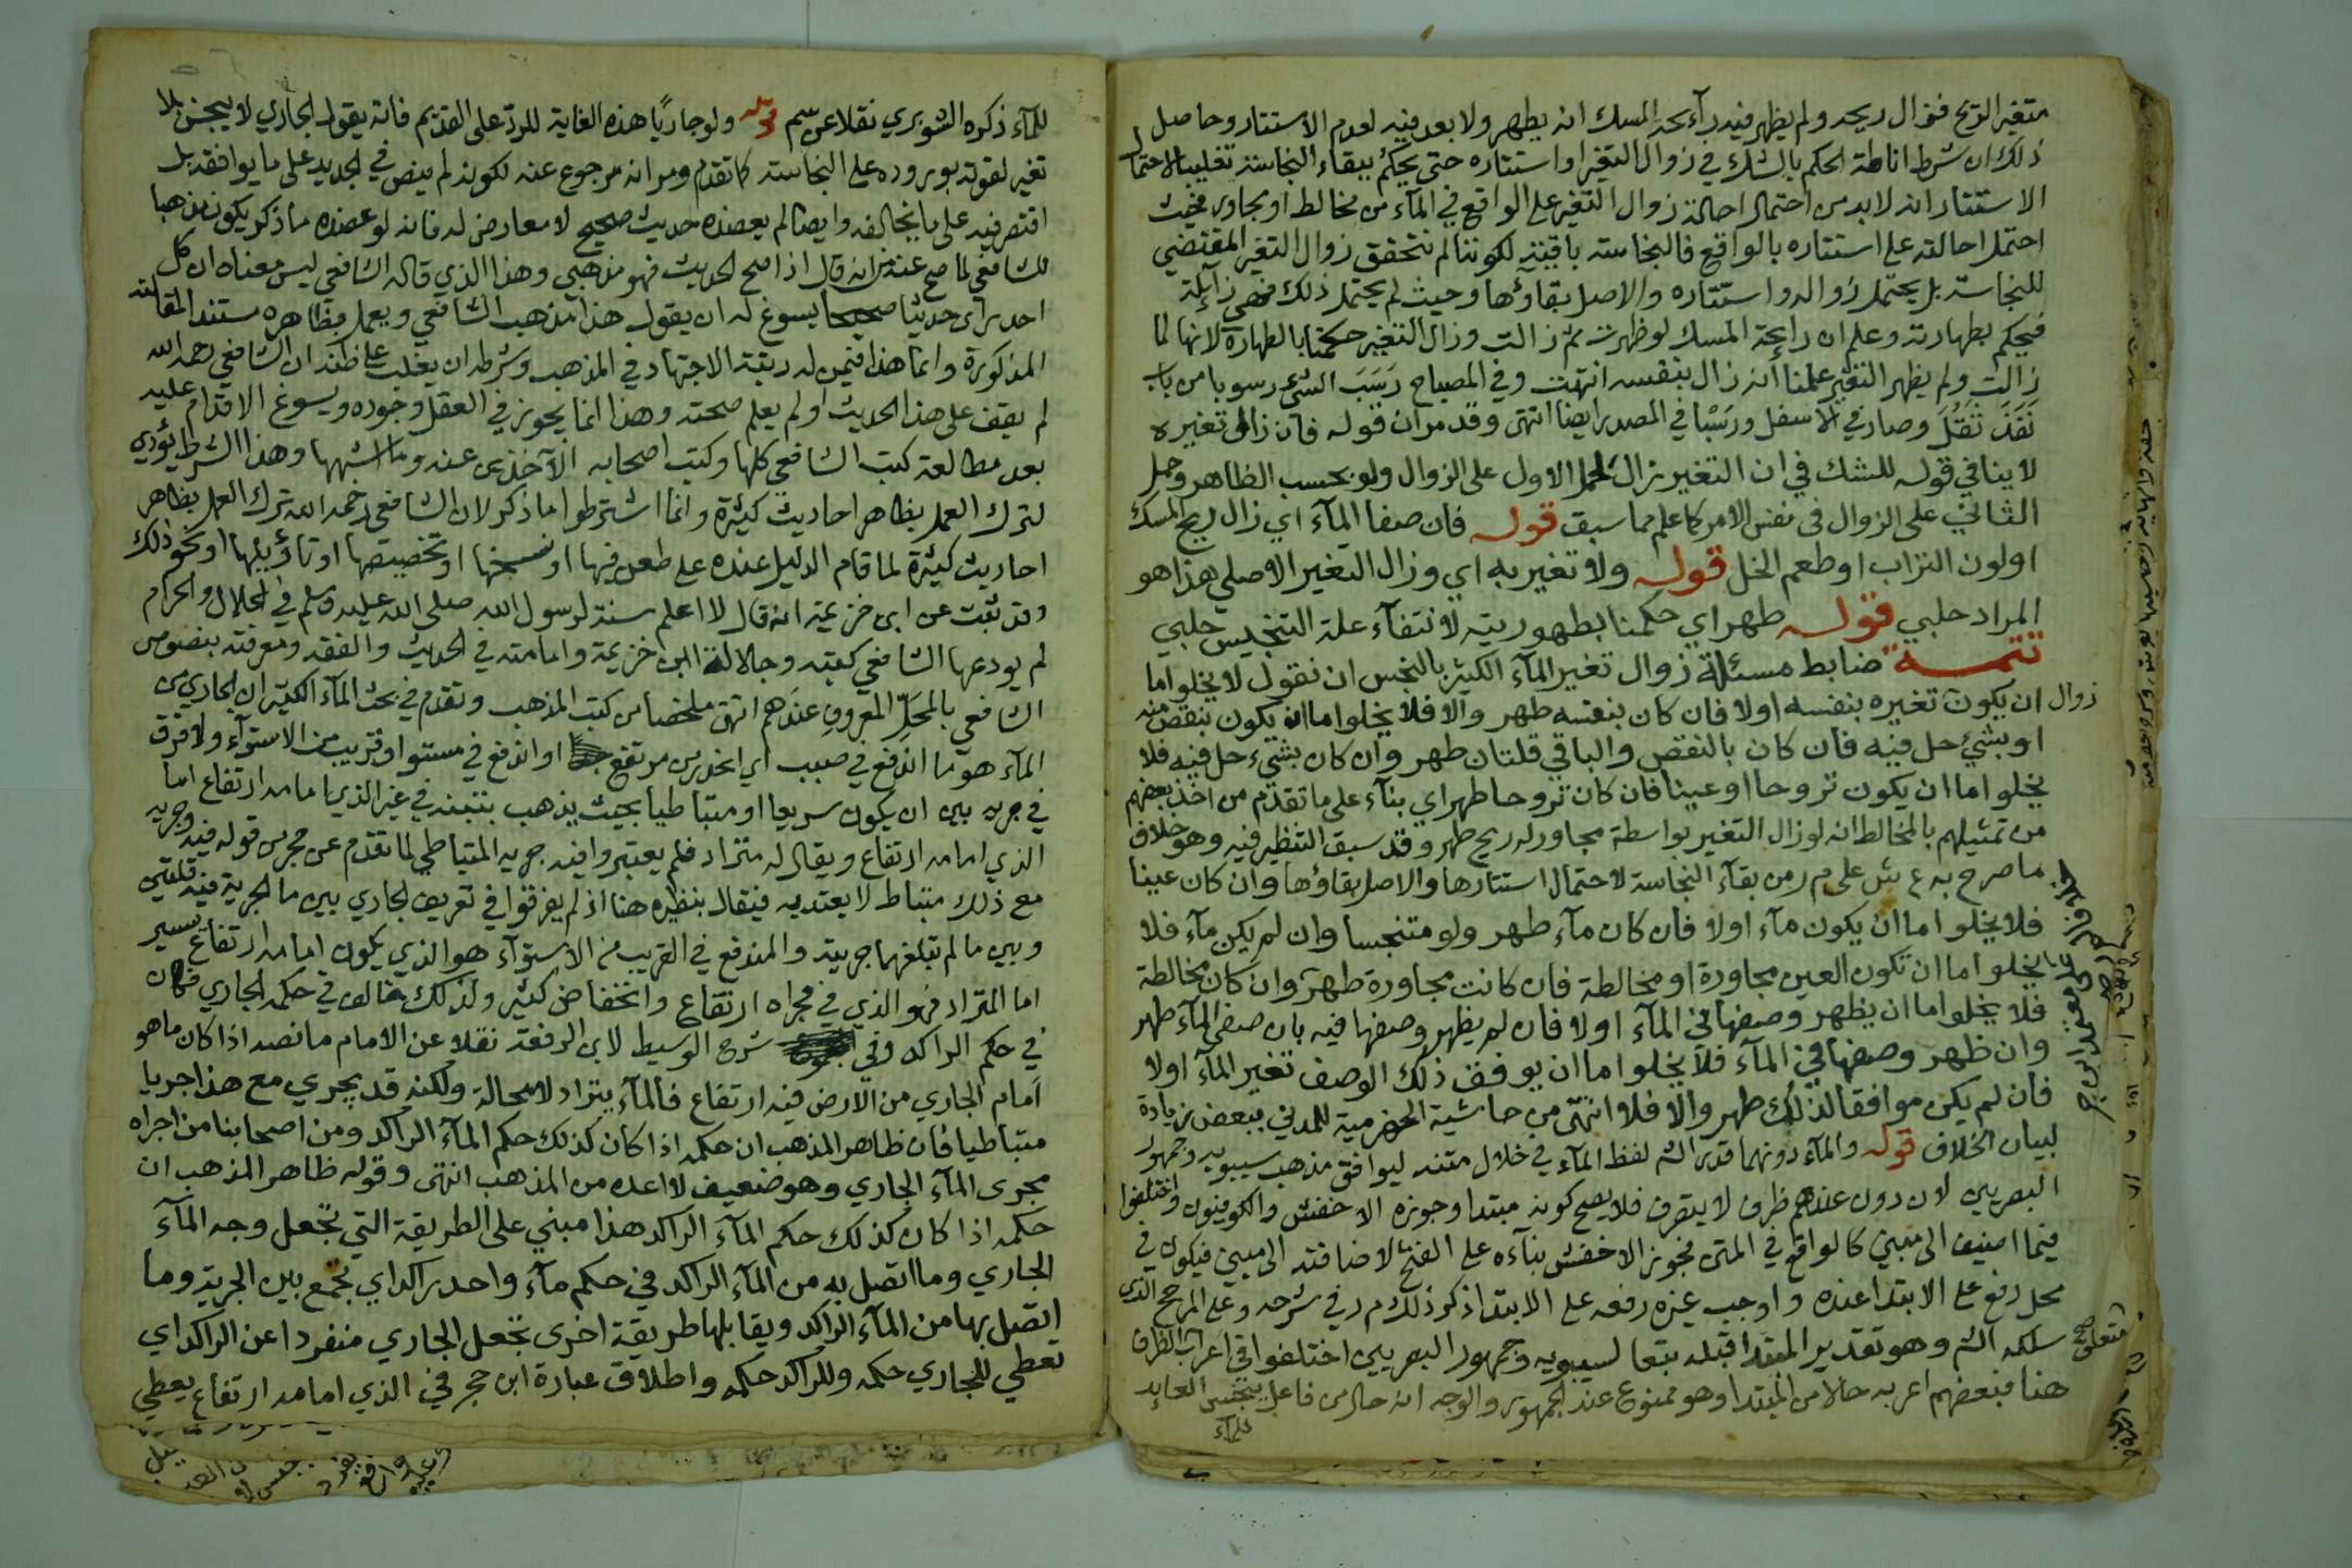 متغير الريح فزال ريحه ولم يظهر فيه رائحة المسك انه يطهر ولا بعد فيه لعدم الاستتار وحاصل
ذلك ان شرط اناطة الحكم بالشك في زوال التغير او استتاره حتى يحكم ببقاء النجاسة تغليبا لاحتمال
الاستتار انه لا بد من احتمال احالة زوال التغير على الواقع في المآء من مخالط او مجاور فحيث
احتمل احالته على استتاره بالواقع فالنجاسة باقية لكوننا لم نتحقق زوال التغير المقتضي
للنجاسة بل يحتمل زواله واستتاره والاصل بقاؤها وحيث لم يحتمل ذلك فهي زايلة
فيحكم بطهارته وعلم ان رايحة المسك لو ظهرت ثم زالت وزال التغير حكمنا بالطهارة لانها لما
زالت ولم يظهر التغير علمنا أنه زال بنفسه انتهت وفي المصباح رَسَبَ الشئ رسوبا من باب
قَعَدَ ثَقُلَ وصار في الاسفل ورَسْبًا في المصدر ايضا انتهى وقد مر ان قوله فان زال تغيره
لا ينافي قوله للشك في ان التغير زال لحمل الاول على الزوال ولو بحسب الظاهر وحمل
الثاني على الزوال في نفس الامر كما علم مما سبق قوله فان صفا المآء اي زال ريح المسك
او لون التراب او طعم الخل قوله ولا تغير به اي وزال التغير الاصلي هذا هو
المراد حلبي قوله طهر اي حكمنا بطهوريته لانتفآء علة التنجيس حلبي
تتمــة ضابط مسئلة زوال تغير المآء الكثير بالنجس ان نقول لا يخلو اما
زوال ان يكون تغيره بنفسه اولا فان كان بنفسه طهر والا فلا يخلو اما ان يكون بنقص منه
او بشئ حل فيه فان كان بالنقص والباقي قلتان طهر وان كان بشئ حل فيه فلا
يخلو اما ان يكون تروحا او عينا فان كان تروحا طهر اي بنآء على ما تقدم من اخذ بعضهم
من تمثيلهم بالمخالط انه لو زال التغير بواسطة مجاور له ريح طهر وقد سبق التنظير فيه وهو خلاف
ما صرح به ع ش على م ر من بقآء النجاسة لاحتمال استتارها والاصل بقاؤها وان كان عينا
فلا يخلو اما ان يكون مآء اولا فان كان مآء طهر ولو متنجسا وان لم يكن مآء فلا
يخلو اما ان تكون العين مجاورة او مخالطة فان كانت مجاورة طهر وان كان مخالطة
فلا يخلو اما ان يظهر وصفها في المآء اولا فان لم يظهر وصفها فيه بان صفي المآء طهر
وان ظهر وصفها في المآء فلا يخلو اما ان يوفق ذلك الوصف تغير المآء اولا
فان لم يكن موافقا لذلك طهر والا فلا انتهى من حاشية الحضرمية للمدني ببعض زيادة
لبيان الخلاف قوله والمآء دونهما قدر الش لفظ المآء في خلال متنه ليوافق مذهب سيبويه وجمهور
البصريين لان دون عندهم ظرف لا يتصرف فلا يصح كونه مبتدا وجوزه الاخفش والكوفيون واختلفوا
فيما اضيف الى مبني كالواقع في المتن فجوز الاخفش بناءه على الفتح لاضافته الى مبني فيكون في
محل رفع على الابتدا عنده واوجب غيره رفعه على الابتدا ذكر ذلك م ر في شرحه وعلى المرجح الذي
سلكه الش وهو تقدير المبتدا قبله تبعا لسيبويه وجمهور البصريين اختلفوا في اعراب الظرف
هنا فبعضهم اعربه حالا من المبتدا وهو ممنوع عند الجمهور والوجه انه حال من فاعل ينجس العايد
للمآء
للمآء ذكره الشوبري نقلا عن سم قوله ولو جاريًا هذه الغاية للرد على القديم فانه يقول الجاري لا ينجس بلا
تغير لقوته بوروده على النجاسة كما تقدم ومر انه مرجوع عنه لكونه لم ينص في الجديد على ما يوافقه بل
اقتصر فيه على ما يخالفه وايضا لم يعضده حديث صحيح لا معارض له فانه لو عضده ما ذكر يكون مذهبا
للشافعي لما صح عنه من انه قال اذا صح الحديث فهو مذهبي وهذا الذي قاله الشافعي ليس معناه ان كل
احد راى حديثا صحيحا يسوغ له ان يقول هذا مذهب الشافعي ويعمل بظاهره مستندا لمقالته
المذكورة وانما هذا فيمن له رتبة الاجتهاد في المذهب وشرطه ان يغلب على ظنه ان الشافعي رحمه الله
لم يقف على هذا الحديث او لم يعلم صحته وهذا انما يجوز في العقل وجوده ويسوغ الاقدام عليه
بعد مطالعة كتب الشافعي كلها وكتب اصحابه الآخذين عنه وما اشبهها وهذا الشرط يؤدي
لترك العمل بظاهر احاديث كثيرة وانما اشترطوا ما ذكر لان الشافعي رحمه الله ترك العمل بظاهر
احاديث كثيرة لما قام الدليل عنده على طعن فيها او نسخها او تخصيصها او تاؤيلها او نحو ذلك
وقد ثبت عن ابن خزيمة انه قال لا اعلم سنة لرسول الله صلى الله عليه وسلم في الحلال والحرام
لم يودعها الشافعي كتبه وجلالة ابن خزيمة وامامته في الحديث والفقه ومعرفته بنصوص
الشافعي بالمحلّ المعروف عندهم انتهى ملخصا من كتب المذهب وتقدم في بحث المآء الكثير ان الجاري من
المآء هو ما اندفع في صبب اي انحدر من مرتفع او اندفع في مستو او قريب من الاستوآء ولا فرق
في جريه بين ان يكون سريعا او متباطيا بحيث يذهب بتبنه في غير الذي امامه ارتفاع اما
الذي امامه ارتفاع ويقال له متراد فلم يعتبروا فيه جريه المتباطي لما تقدم عن حجر من قوله فيه وجريه
مع ذلك متباط لا يعتد به فيقال بنظيره هنا اذ لم يفرقوا في تعريف الجاري بين ما الجرية فيه قلتين
وبين ما لم تبلغهما جريته والمندفع في القريب من الاستوآء هو الذي يكون امامه ارتفاع يسير
اما المتراد فهو الذي في مجراه ارتفاع وانخفاض كثير ولذلك خالف في حكمه الجاري فكان
في حكم الراكد وفي شرح الوسيط لابن الرفعة نقلا عن الامام ما نصه اذا كان ما هو
اَمام الجاري من الارض فيه ارتفاع فالمآء يتراد لا محالة ولكنه قد يجري مع هذا جريا
متباطيا فان ظاهر المذهب ان حكمه اذا كان كذلك حكم المآء الراكد ومن اصحابنا من اجراه
مجرى المآء الجاري وهو ضعيف لا اعده من المذهب انتهى وقوله ظاهر المذهب ان
حكمه اذا كان كذلك حكم المآء الراكد هذا مبني على الطريقة التي تجعل وجه المآء
الجاري وما اتصل به من المآء الراكد في حكم مآء واحد راكد اي تجمع بين الجرية وما
اتصل بها من المآء الراكد ويقابلها طريقة اخرى تجعل الجاري منفردا عن الراكد اي
تعطي للجاري حكمه وللراكد حكمه واطلاق عبارة ابن حجر في الذي امامه ارتفاع يعطي